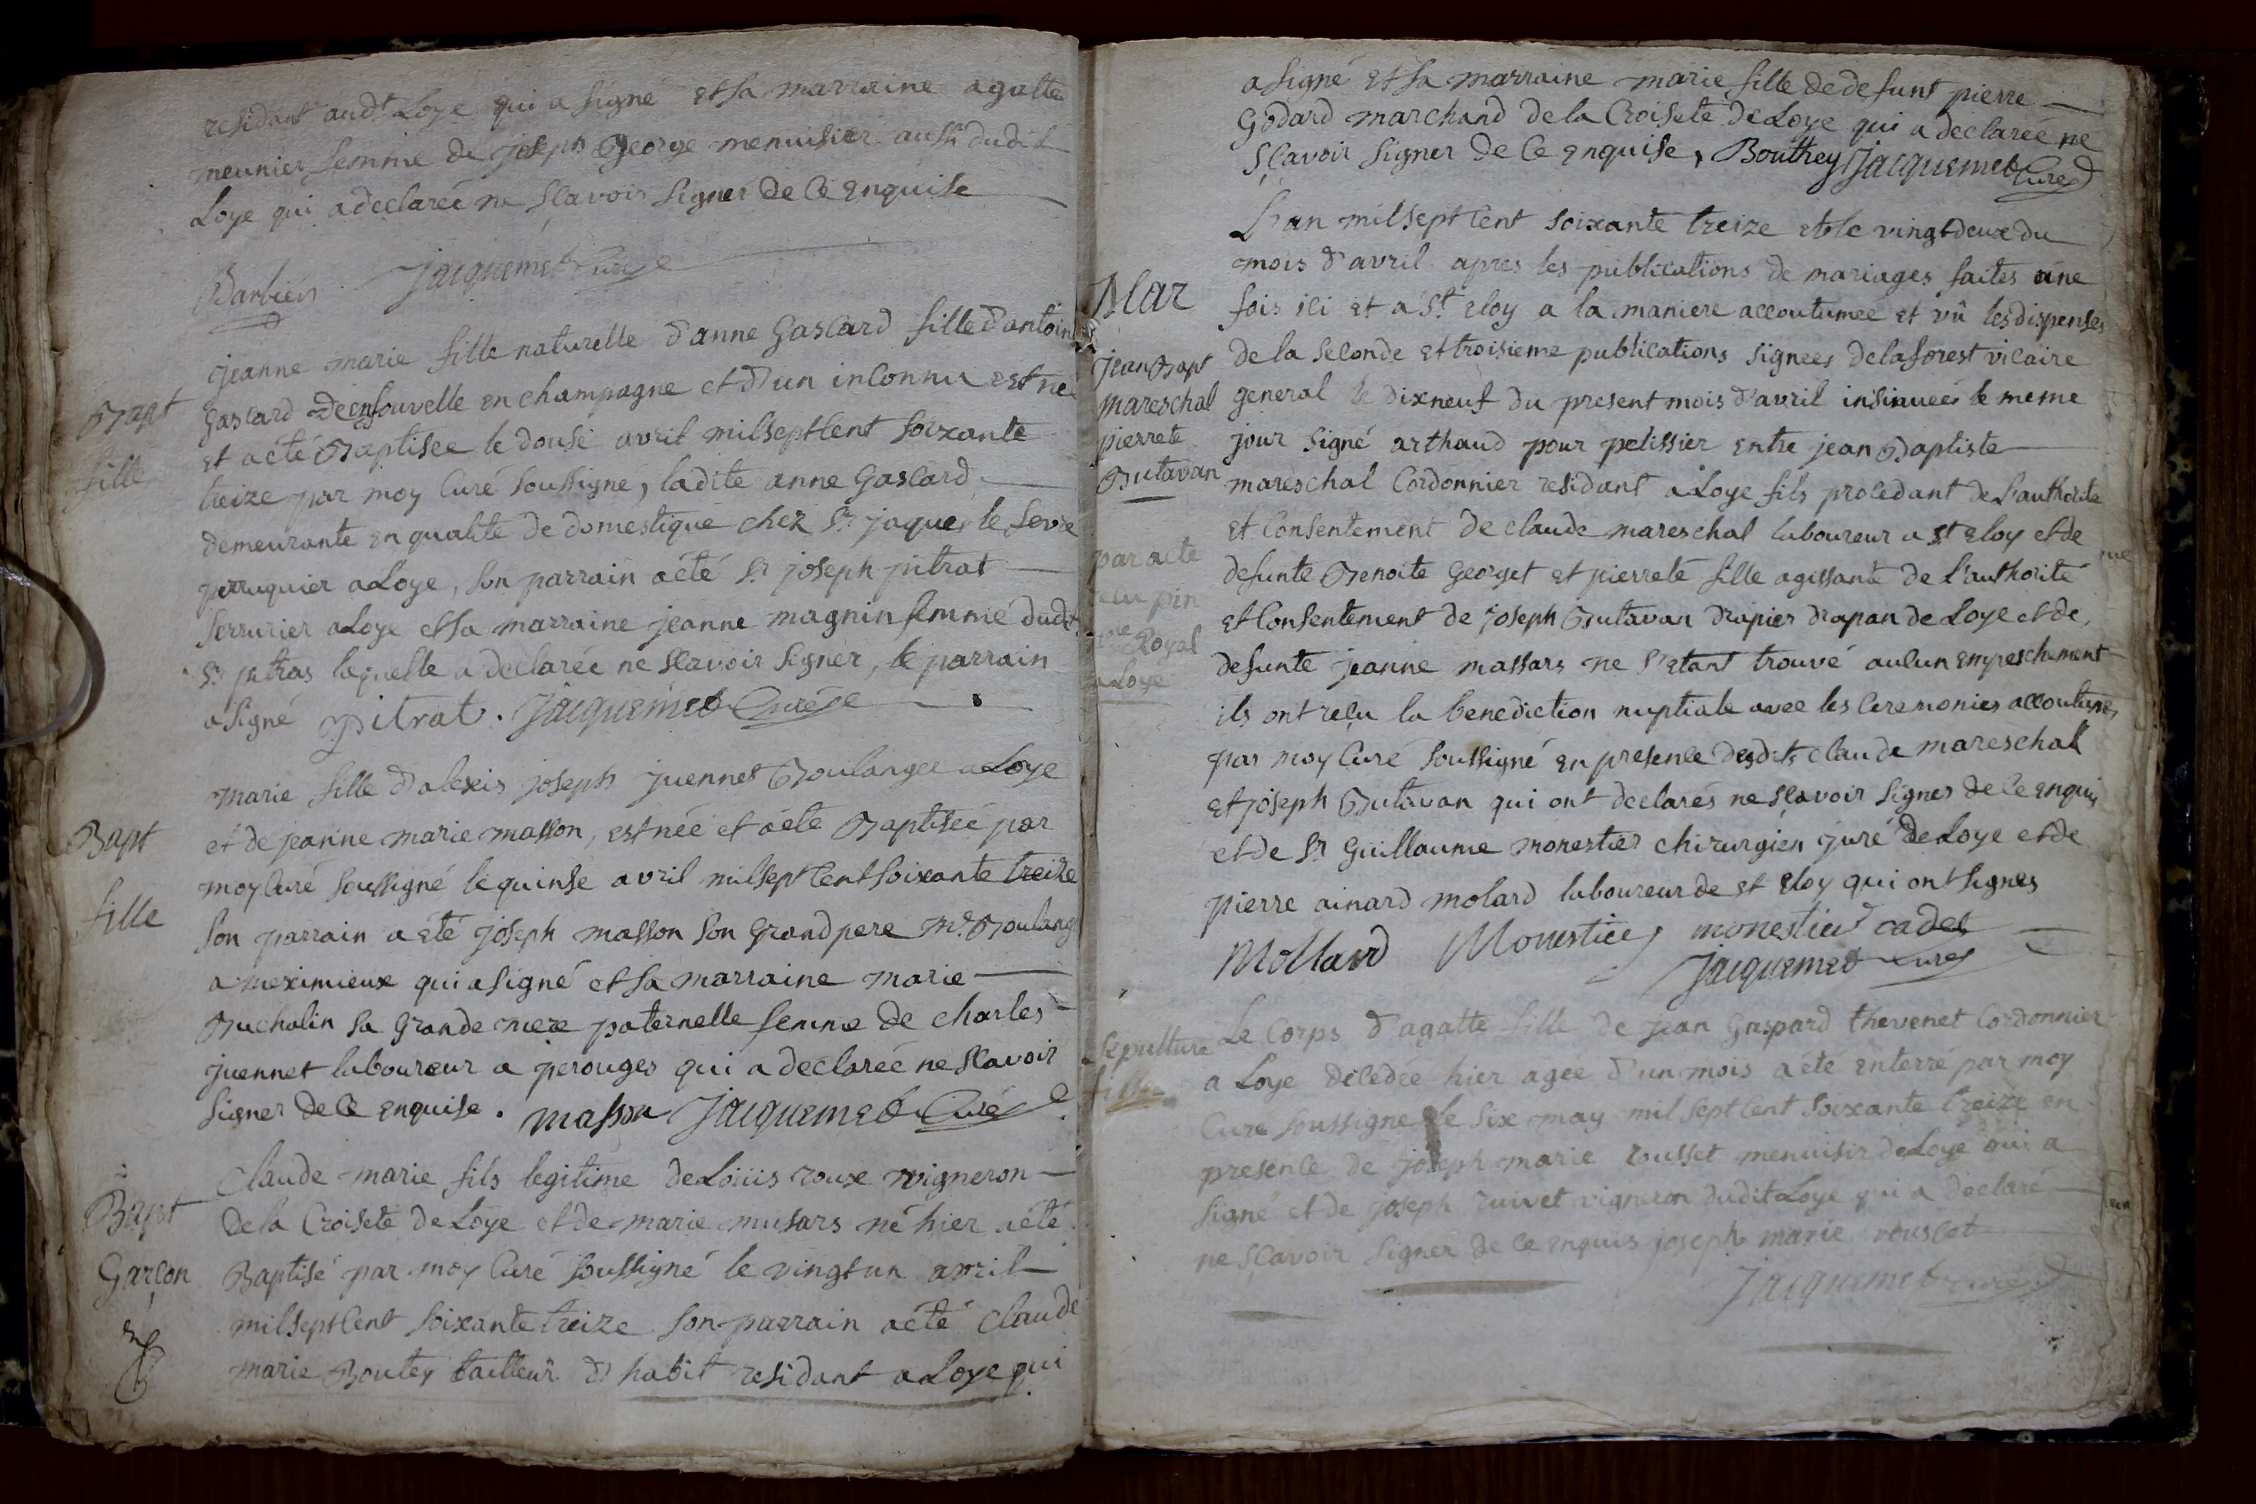 residant aud.t Loye qui a signé et sa marraine agatte
meunier femme de joseph George menuisier aussi dudit
Loye qui a declareé ne sçavoir signer de ce enquise
Barbier Jacquemet Curé
Bapt
fille
jeanne marie fille naturelle d'anne Gascard fille d'antoine
Gascard en champagne et d'un inconnu est neé
et a été Baptisee le douse avril mil sept cent soixante
treize par moy Curé soussigne, ladite anne Gascard
demeurante en qualite de domestique chez Sr. jaques le sevre
perruquier a Loye, son parrain a été Sr joseph pitrat
serrurier a Loye et sa marraine jeanne magnin femme dudt
Sr pitras laquelle a declarée ne scavoir signer, le parrain
a signé pitrat. Jacquemet Curé
Bapt
fille
marie fille d'alexis joseph juennet Boulangee a Loye
et de jeanne marie masson, est neé et a été Baptiseé par
moy Curé soussigné le quinse avril mil sept cent soixante treize
son parrain a eté joseph masson son grand pere me. Boulang
a meximieux qui a signé et sa marraine marie
Buchalin sa grande mere paternelle femme de charles
juennet laboureur a perouges qui a declareé ne scavoir
signer de ce enquise. masson Jacquemet Curé
Bapt
Garçon
Claude marie fils legitime de Loüis roux vigneron
de la Croisete de Loye et de marie musars né hier a été
Baptisé par moy Curé soussigné le vingt un avril
mil sept cent soixante treize son parrain a été Claude
marie Boutey tailleur d'habit residant a Loye qui
a signé et sa marraine marie fille de defunt pierre
Godard marchand de la Croisete de Loye qui a declareé ne
sçavoir signer de ce enquise, Bouthey Jacquemet Curé
Mar
jean Bapt
mareschal
pierrete
Butavan
par acte
royal
a Loye
L'an mil sept cent soixante treize et le vingt deux du
mois d'avril apres les publications de mariages faites une
fois ici et a St. eloy a la maniere accoutumee et vû les dispenses
de la seconde et troisieme publications signees de la forest vicaire
general le dix neuf du present mois d'avril insinueés le meme
jour signé arthaud pour pelissier entre jean Baptiste
mareschal Cordonnier residant a Loye fils procedant de l'authorite
et consentement de claude mareschal laboureur a St eloy et de
defunte Benoite Georget et pierreté fille agissante de l'authorité
et consentement de joseph Butavan drapier drapan de Loye et de
defunte jeanne massars ne s'etant trouvé aucun empeschement
ils ont reçu la benediction nuptiale avec les Ceremonies accoutumeés
par moy Curé soussigné en presence desdits claude mareschal
et joseph Butavan qui ont declarés ne sçavoir signer de ce enquis
et de Sr Guillaume monestier chirurgien juré de Loye et de
pierre ainard molard laboureur de st eloy qui ont signes
Mollard Monestier monestier cadet
Jacquemet Curé
sepulture
fille
Le Corps d'agatte fille de jean Gaspard thevenet Cordonnier
a Loye decedeé hier ageé d'un mois a été enterré par moy
Curé soussigné le six may mil sept cent soixante treize en
presence de joseph marie rousset menuisir de Loye qui a
signé et de joseph ruivet vigneron dudit Loye qui a declaré
ne sçavoir signer de ce enquis joseph marie rouscet
Jacquemet Curé